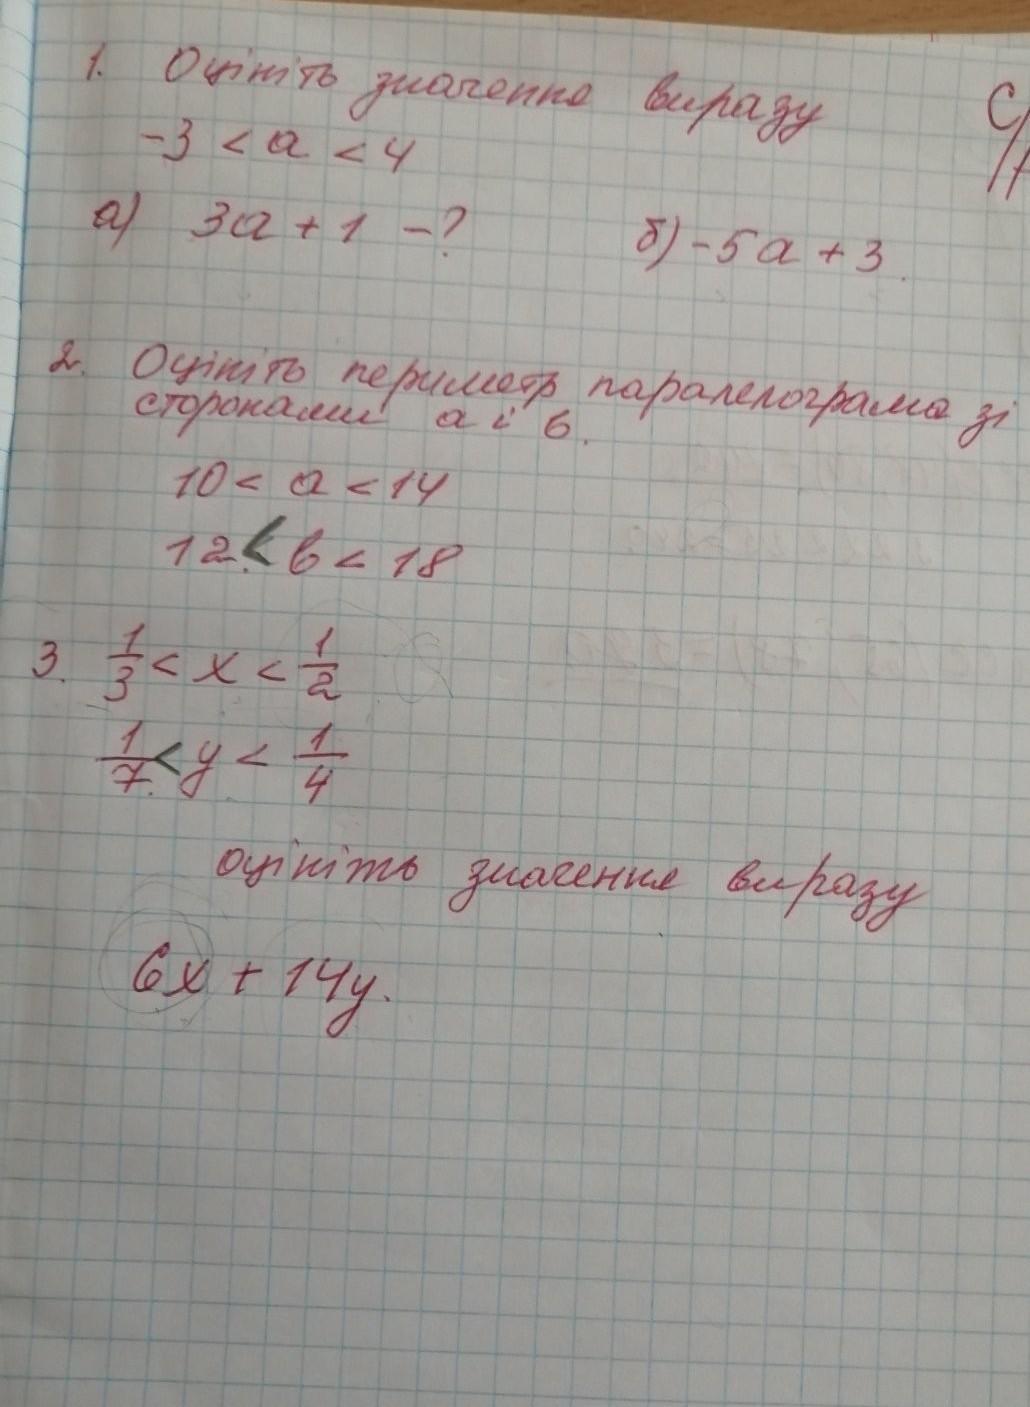 1. Оцініть значення виразу
-3 < a < 4
а) 3a + 1 -? б) -5a + 3.
2. Оцініть периметр паралелограма зі
сторонами a і b.
10 < a < 14
12 < b < 18
3. 1/3 < x < 1/2
1/7 < y < 1/4
оцініть значення виразу
6x + 14y.